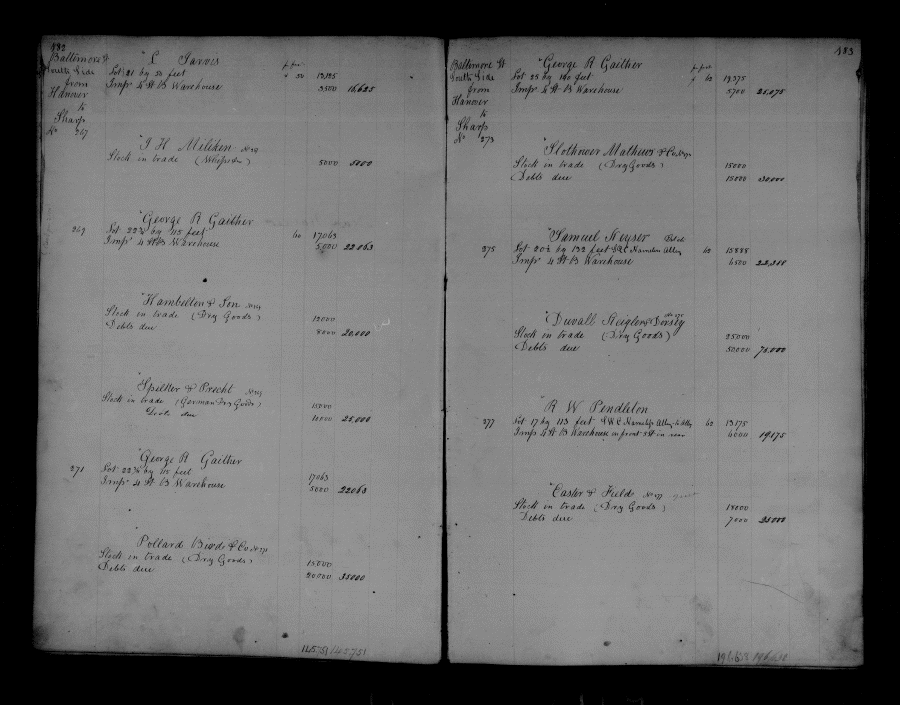 182
Baltimore St
South Side
from
Hanover
to
Sharp
No 267
" L Jarvis
Lot 21 by 50 feet 50 13125
Imps 4 St B Warehouse 3500 16,625
" J H Meliken
Stock in trade 5000 5000
" George R Gaither
269 Lot 22¾ by 115 feet 60 17063
Imps 4 St B Warehouse 5000 22063
" Hambelton & Son
Stock in trade (Dry Goods) 12000
Debts due 8000 20,000
" Spilker & Precht
Stock in trade (German Dry Goods) 15000
Debts due 10000 25,000
" George R Gaither
271 Lot 22¾ by 115 feet 17063
Imps 4 St B Warehouse 5000 22063
" Pollard Bird & Co No 271
Stock in trade (Dry Goods) 15,000
Debts due 20000 35000
145751 145751
183
Baltimore St
South Side
from
Hanover
to
Sharp
No 273
" George R Gaither
Lot 25 by 140 feet 62 19375
Imps 4 St B Warehouse 5700 25,075
" Slothower Mathews & Co No 273
Stock in trade (Dry Goods) 15000
Debts due 15000 30000
" Samuel Keyser
275 Lot 20½ by 132 feet Alley 62 15888
Imps 4 St B Warehouse 6500
" Duvall Keigler & Dorsey
Stock in trade (Dry Goods) 25000
Debts due 50000 75,000
" R W Pendleton
277 Lot 17 by 113 feet Alley to Alley 62 13175
Imps 4 St B Warehouse in front 3 St in rear 6000 19175
" Easter & Fields No 277
Stock in trade (Dry Goods) 18000
Debts due 7000 25000